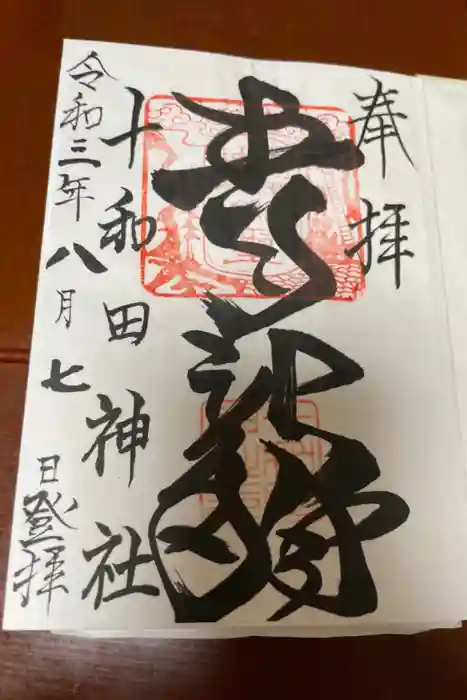 奉拝
十和田神社
令和三年八月七日登拝